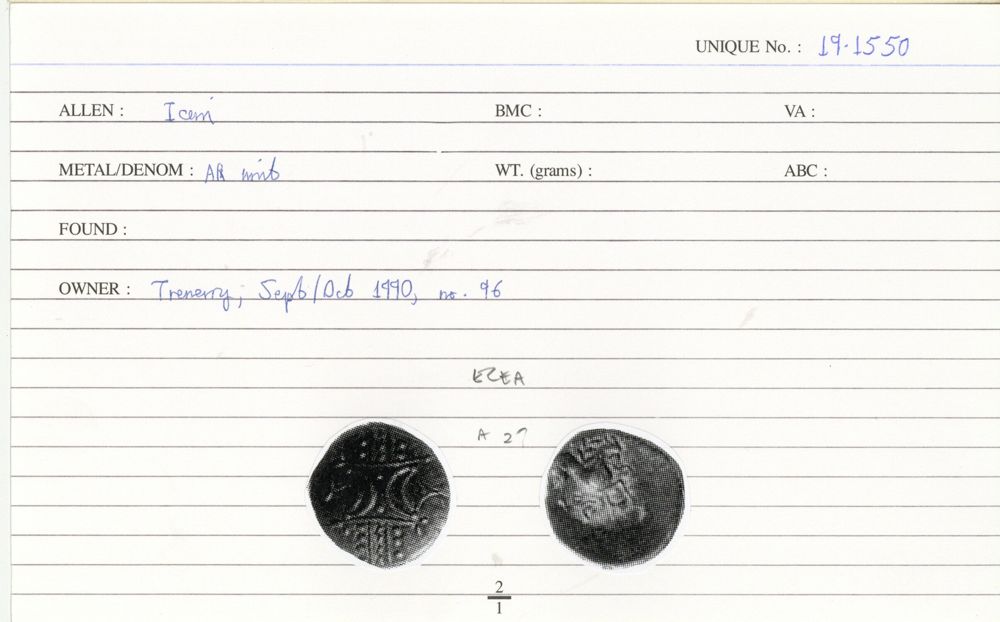 UNIQUE No. : 19.1550
ALLEN : Iceni BMC : VA :
METAL/DENOM : AR unit WT. (grams) : ABC :
FOUND :
OWNER : Trenerry; Sept/Oct 1990, no. 96
A 27
2
1